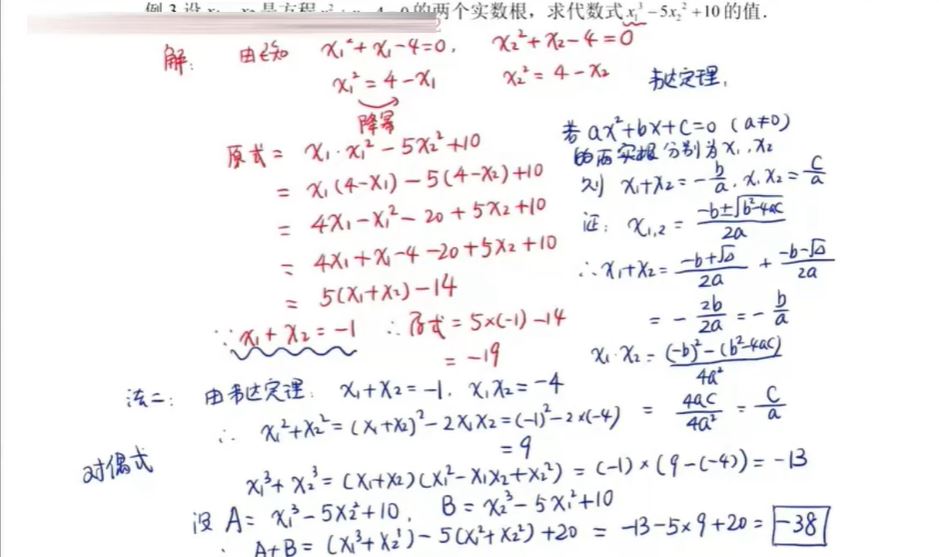 例 3 设 x₁, x₂ 是方程 x² + x - 4 = 0 的两个实数根，求代数式 x₁³ - 5x₂² + 10 的值.
解: 由已知 x₁² + x₁ - 4 = 0, x₂² + x₂ - 4 = 0
x₁² = 4 - x₁ x₂² = 4 - x₂
降幂
原式 = x₁·x₁² - 5x₂² + 10
= x₁(4 - x₁) - 5(4 - x₂) + 10
= 4x₁ - x₁² - 20 + 5x₂ + 10
= 4x₁ + x₁ - 4 - 20 + 5x₂ + 10
= 5(x₁ + x₂) - 14
∵ x₁ + x₂ = -1 ∴ 原式 = 5×(-1) - 14
= -19
韦达定理,
若 ax² + bx + c = 0 (a ≠ 0)
的两实根分别为 x₁, x₂
则 x₁ + x₂ = -b/a, x₁x₂ = c/a
证: x₁,₂ = (-b ± √(b² - 4ac))/2a
∴ x₁ + x₂ = (-b + √Δ)/2a + (-b - √Δ)/2a
= -2b/2a = -b/a
x₁·x₂ = ((-b)² - (b² - 4ac))/4a²
= 4ac/4a² = c/a
法二: 由韦达定理: x₁ + x₂ = -1, x₁x₂ = -4
∴ x₁² + x₂² = (x₁ + x₂)² - 2x₁x₂ = (-1)² - 2×(-4)
= 9
对偶式
x₁³ + x₂³ = (x₁ + x₂)(x₁² - x₁x₂ + x₂²) = (-1)×(9 - (-4)) = -13
设 A = x₁³ - 5x₂² + 10, B = x₂³ - 5x₁² + 10
∴ A + B = (x₁³ + x₂³) - 5(x₁² + x₂²) + 20 = -13 - 5×9 + 20 = -38